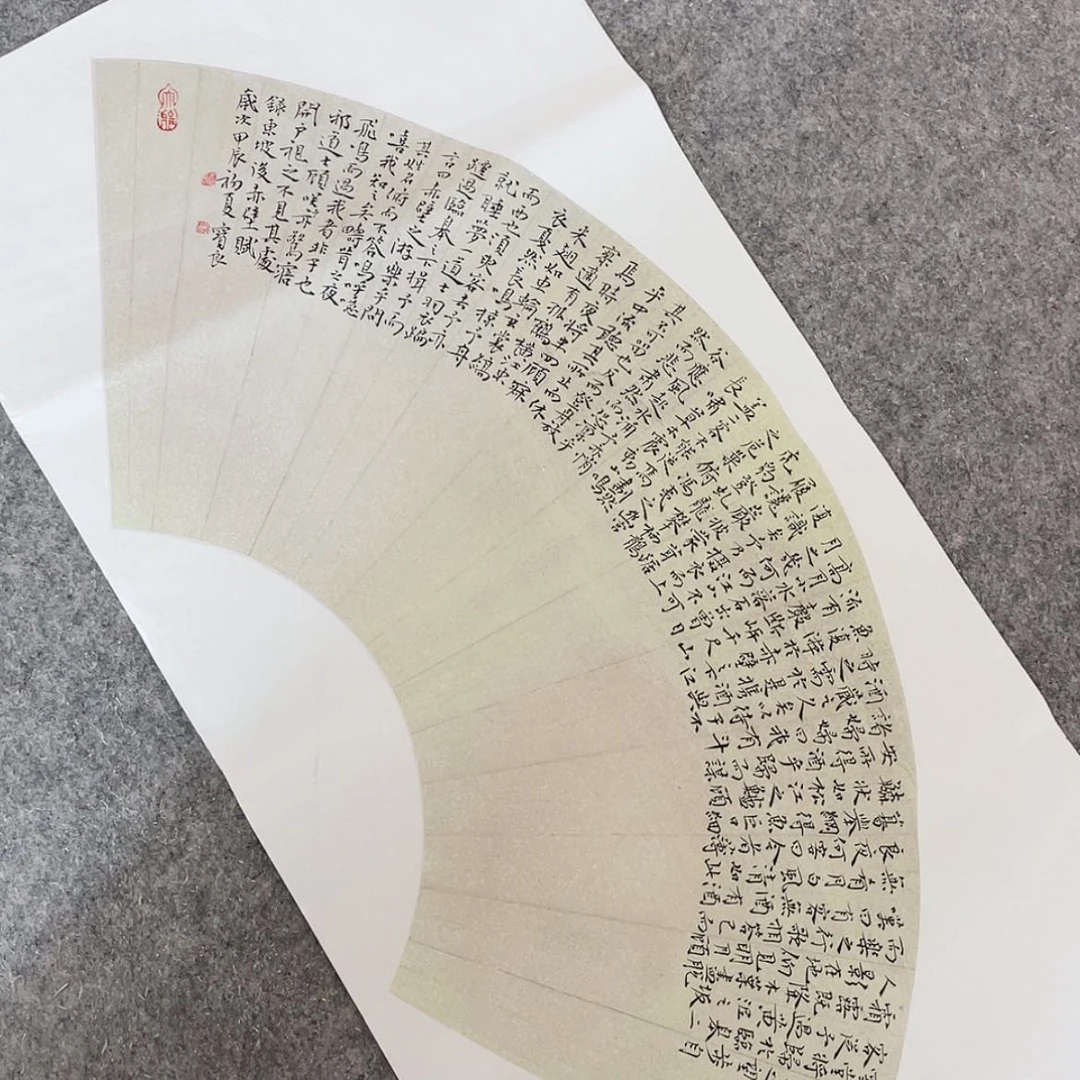 客從予過黃泥之坂
霜露既降木葉盡脫
人影在地仰見明月顧
而樂之行歌相答已而
嘆曰有客無酒有酒
無肴月白風清如此
良夜何客曰今者薄
暮舉網得魚巨口細
鱗狀如松江之鱸顧
安所得酒乎歸而謀
諸婦婦曰我有斗
酒藏之久矣以待子不
時之需於是攜酒與
魚復游於赤壁之下江
流有聲斷岸千尺山
高月小水落石出曾日
月之幾何而江山不可
復識矣予乃攝衣而上
履巉巖披蒙茸踞
虎豹登虬龍攀栖鶻
之危巢俯馮夷之幽宮
蓋二客不能從焉劃然
長嘯草木震動山鳴
谷應風起水涌予亦悄
然而悲肅然而恐凜乎
其不可留也反而登舟放
乎中流聽其所止而休
焉時夜將半四顧寂
寥適有孤鶴橫江東
來翅如車輪玄裳縞
衣戛然長鳴掠予舟
而西也須臾客去予亦
就睡夢一道士羽衣蹁
躚過臨皋之下揖予而
言曰赤壁之游樂乎問
其姓名俯而不答嗚呼噫
嘻我知之矣疇昔之夜
飛鳴而過我者非子也
邪道士顧笑予亦驚寤
開戶視之不見其處
錄東坡後赤壁賦
歲次甲辰初夏寶良